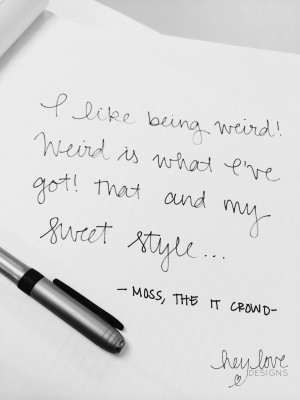 I like being weird!
Weird is what I've
got! That and my
sweet style...
- MOSS, THE IT CROWD-
hey love
DESIGNS